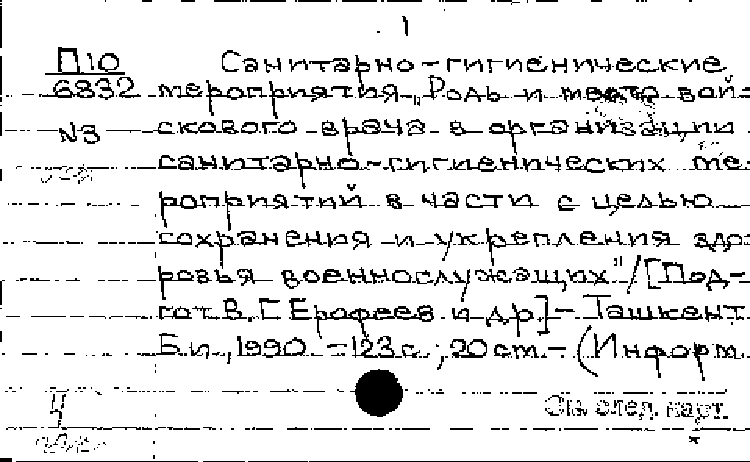 1
П10 Санитарно-гигиенические
6832 мероприятия „Роль и место вой-
N3 скового врача в организации
санитарно-гигиенических ме-
роприятий в части с целью
сохранения и укрепления здо-
ровья военнослужащих"/[Под-
гот. В. Г. Ерофеев и др.] - Ташкент:
Б.и., 1990. - 123 с.; 20 см. - (Информ.
4 См. след. карт.